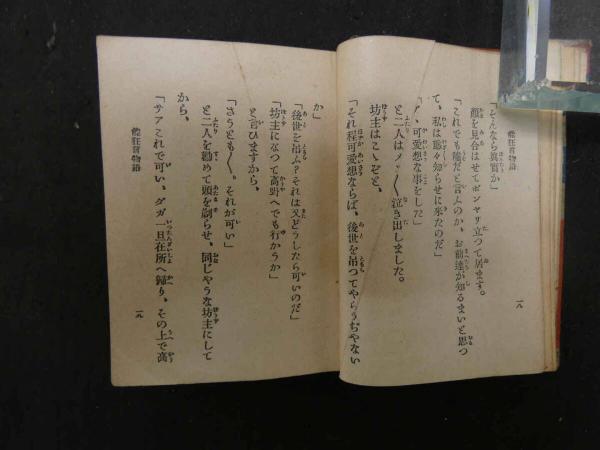 能狂言物語
一八
「そんなら眞實か」
顏を見合はせてボンヤリ立つて居ます。
「これでも噓だと言ふのか、お前達が知るまいと思つ
て、私は態々知らせに來たのだ」
「ハヽ可愛想な事をした」
と二人はメソ〳〵泣き出しました。
坊主はこゝぞと、
「それ程可愛想ならば、後世を吊つてやらうぢやない
か」
「後世を吊ふ？それは又どうしたら可いのだ」
「坊主になつて高野へでも行かうか」
と言ひますから、
「さうとも〳〵、それが可い」
と二人を勸めて頭を剃らせ、同じやうな坊主にして
から、
「サアこれで可い、ダガ一旦在所へ歸り、その上で高
能狂言物語
一九